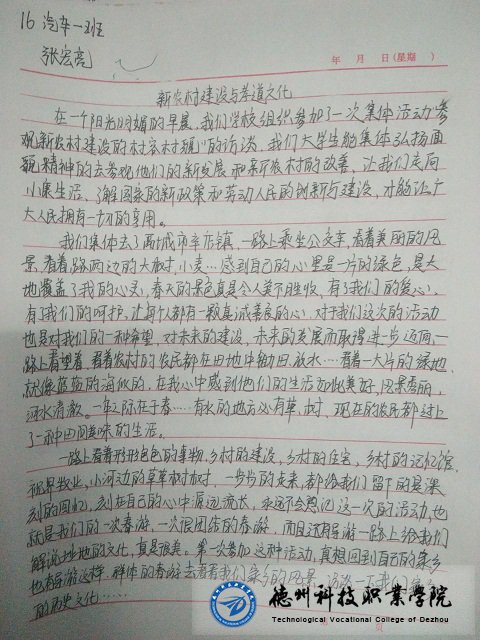 16汽车一班
张宏亮
年 月 日(星期 )
新农村建设与孝道文化
在一个阳光明媚的早晨,我们学校组织参加了一次集体活动"参
观新农村建设的村容村貌"的访谈,我们大学生能集体弘扬面
貌精神的去参观他们的新发展和新农村的改善,让我们走向
小康生活,了解国家的新政策和劳动人民的创新与建设,才能让广
大人民拥有一切的享用。
我们集体去了禹城市辛店镇,一路上乘坐公交车,看着美丽的风
景,看着路两边的大树,小麦…感到自己的心里是一片的绿色,是大
地覆盖了我的心灵,春天的景色真是令人美不胜收,有了我们的爱心,
有了我们的呵护,让每个人都有一颗真诚善良的心,对于我们这次的活动
也是对我们的一种希望,对未来的建设,未来的发展而取得进步迈向,一
路上看望着,看着农村的农民都在田地中锄田,放水……看着一大片的绿地,
就像蓝蓝的海似的,在我心中感到他们的生活如此美好,风景秀丽,
河水清澈。一年之际在于春……有水的地方必有草,树,现在的农民都过上
了一种田园美味的生活。
一路上看着形形色色的事物,乡村的建设,乡村的住宅,乡村的记忆馆,
视界牧业,小河边的草草树树,一步步的走来,都给我们留下的是深
刻的回忆,刻在自己的心中源远流长,永远不会忘记这一次的活动,也
就是我们的一次春游,一次很团结的春游,而且还有导游一路上给我们
解说此地的文化,真是很美。第一次参加这种活动,真想回到自己的家乡
也有导游这样,群体的春游去看看我们家乡的风景,谈谈一下我们
的历史文化……
德州科技职业学院
Technological Vocational College of Dezhou